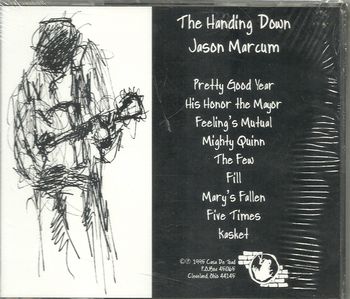 The Handing Down
Jason Marcum
Pretty Good Year
His Honor the Mayor
Feeling's Mutual
Mighty Quinn
The Few
Fill
Mary's Fallen
Five Times
Kasket
©℗ 1995 Casa De Tad
P.O.Box 45065
Cleveland, Ohio 44145